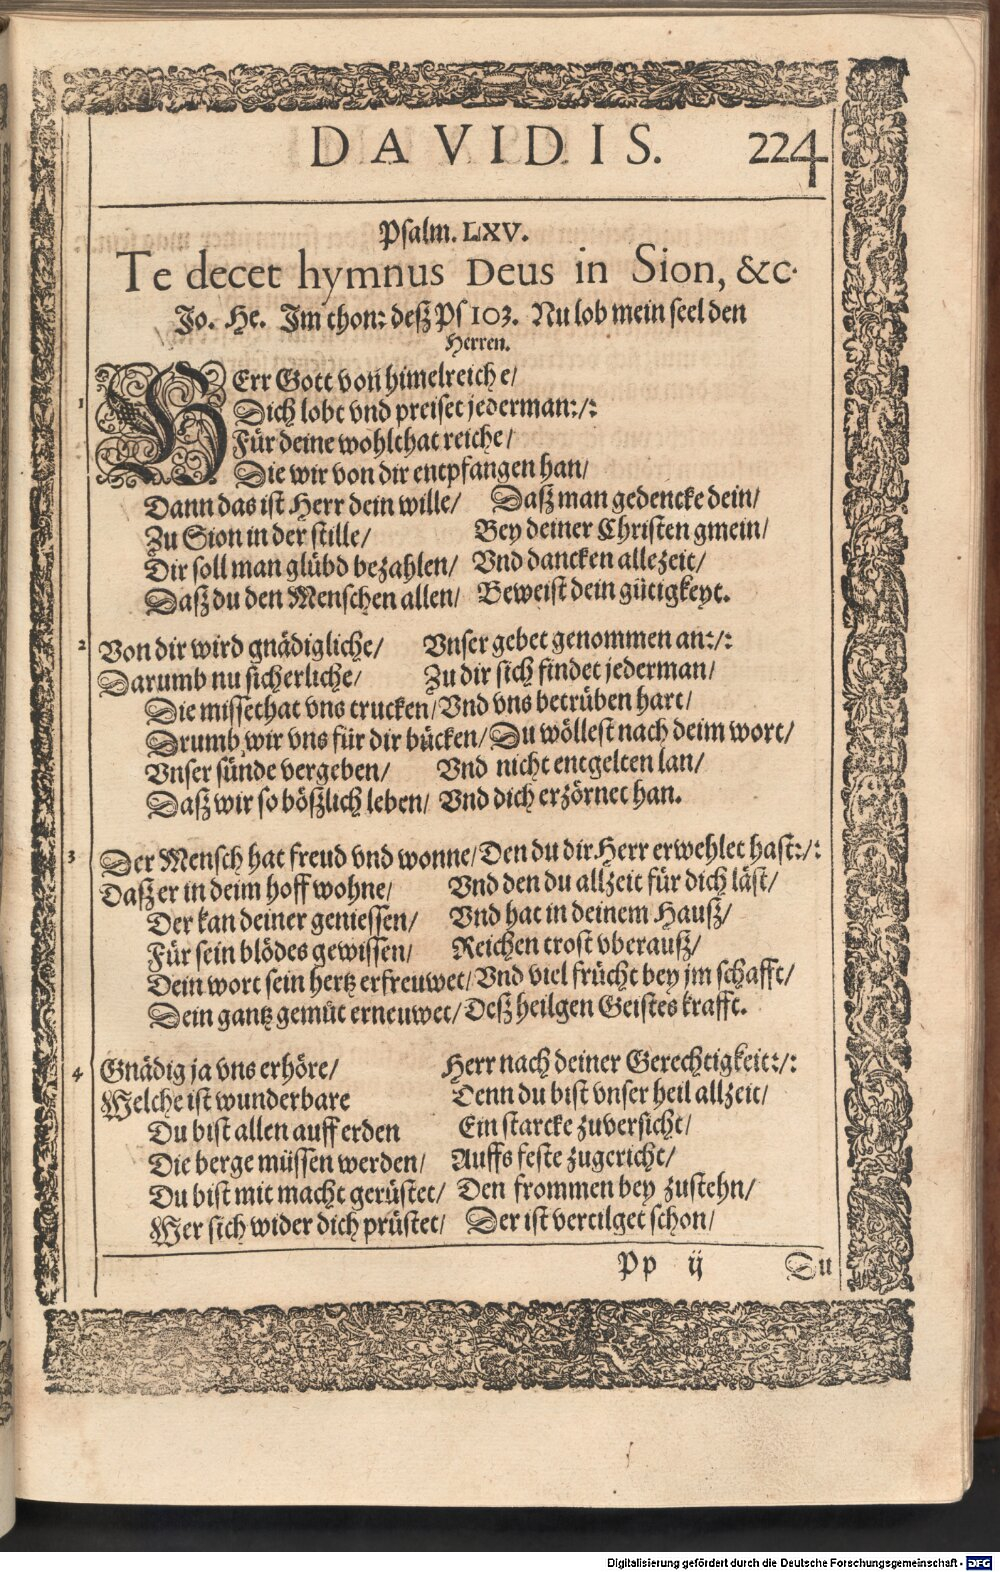 DAVIDIS. 224
Psalm. LXV.
Te decet hymnus Deus in Sion, &c.
Jo. He. Im thon: deß Ps 103. Nu lob mein seel den
Herren.
1 HErr Gott von himelreiche/
Dich lobt vnd preiset jederman:/:
Für deine wohlthat reiche/
Die wir von dir entpfangen han/
Dann das ist Herr dein wille/ Daß man gedencke dein/
Zu Sion in der stille/ Bey deiner Christen gmein/
Dir soll man glübd bezahlen/ Vnd dancken allezeit/
Daß du den Menschen allen/ Beweist dein gütigkeyt.
2 Von dir wird gnädigliche/ Vnser gebet genommen an:/:
Darumb nu sicherliche/ Zu dir sich findet jederman/
Die missethat vns trucken/ Vnd vns betrüben hart/
Drumb wir vns für dir bücken/ Du wöllest nach deim wort/
Vnser sünde vergeben/ Vnd nicht entgelten lan/
Daß wir so bößlich leben/ Vnd dich erzörnet han.
3 Der Mensch hat freud vnd wonne/ Den du dir Herr erwehlet hast:/:
Daß er in deim hoff wohne/ Vnd den du allzeit für dich läst/
Der kan deiner geniessen/ Vnd hat in deinem Hauß/
Für sein blödes gewissen/ Reichen trost vberauß/
Dein wort sein hertz erfreuwet/ Vnd viel frücht bey jm schafft/
Dein gantz gemüt erneuwet/ Deß heilgen Geistes krafft.
4 Gnädig ja vns erhöre/ Herr nach deiner Gerechtigkeit:/:
Welche ist wunderbare Denn du bist vnser heil allzeit/
Du bist allen auff erden Ein starcke zuversicht/
Die berge müssen werden/ Auffs feste zugericht/
Du bist mit macht gerüstet/ Den frommen bey zustehn/
Wer sich wider dich prüstet/ Der ist vertilget schon/
Pp ij Du
Digitalisierung gefördert durch die Deutsche Forschungsgemeinschaft - DFG